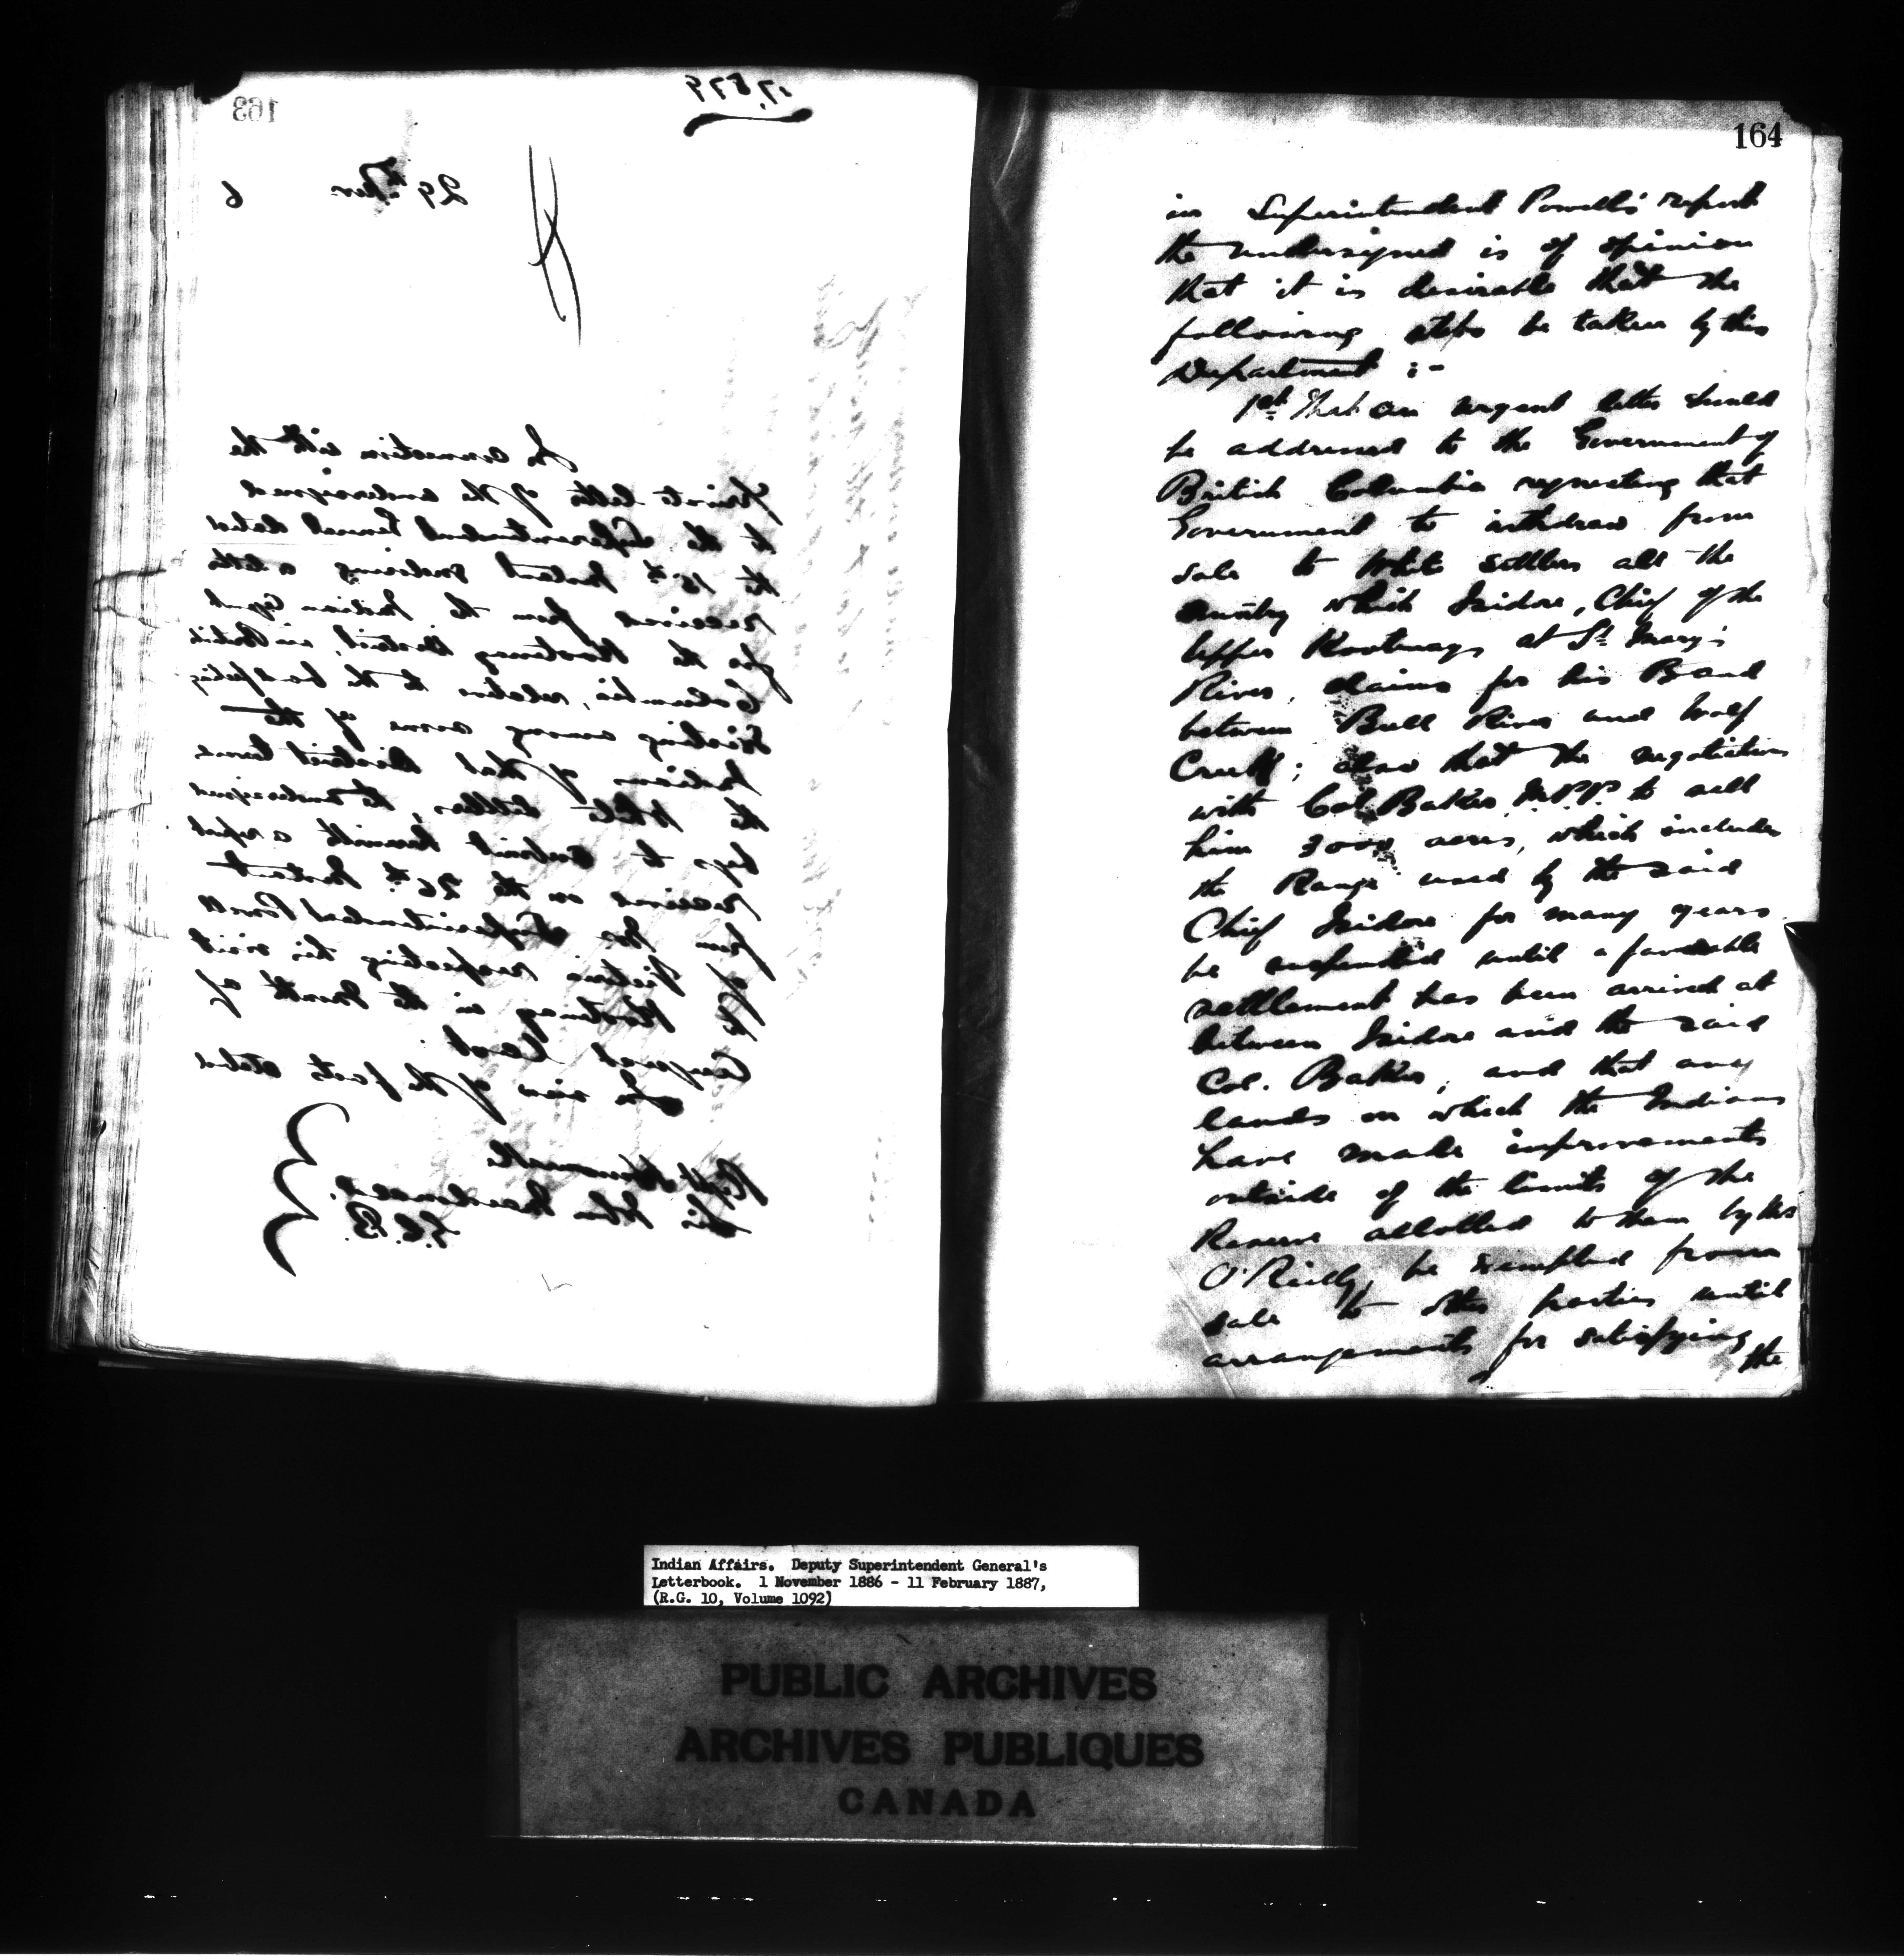 163
17,879
29th Nov. 6
In connection with the
private letter of the undersigned
to the Superintendent General dated
the 15th Instant enclosing a letter
received from the Indian Agent
for the Kootenay District, in British
Columbia, relative to the bad feeling
existing among some of the
Indians of that District towards
the White settlers, the undersigned
begs to submit herewith a report
received on the 26th Instant
from Mr Superintendent Powell
of Victoria respecting his visit
to Kootenay in the month of
August last.
In view of the facts stated
Right Honourable
Sir John Macdonald.
G.C.B.
164
in Superintendent Powell's report
the undersigned is of opinion
that it is desirable that the
following steps be taken by this
Department :-
1st That an urgent letter should
be addressed to the Government of
British Columbia requesting that
Government to withdraw from
sale to White settlers all the
country which Isidore, Chief of the
Upper Kootenays at St Mary's
River, claims for his Band
between Bull River and Wolf
Creek; also that the negotiations
with Col. Baker, M.P.P. to sell
him 3000 acres, which includes
the Range used by the said
Chief Isidore for many years
be suspended until a favorable
settlement has been arrived at
between Isidore and the said
Col. Baker, and that any
lands on which the Indians
have made improvements
outside of the limits of the
Reserve allotted to them by Mr
O'Reilly be exempted from
sale to other parties until
arrangements for satisfying
the
Indian Affairs. Deputy Superintendent General's
Letterbook. 1 November 1886 - 11 February 1887,
(R.G. 10, Volume 1092)
PUBLIC ARCHIVES
ARCHIVES PUBLIQUES
CANADA